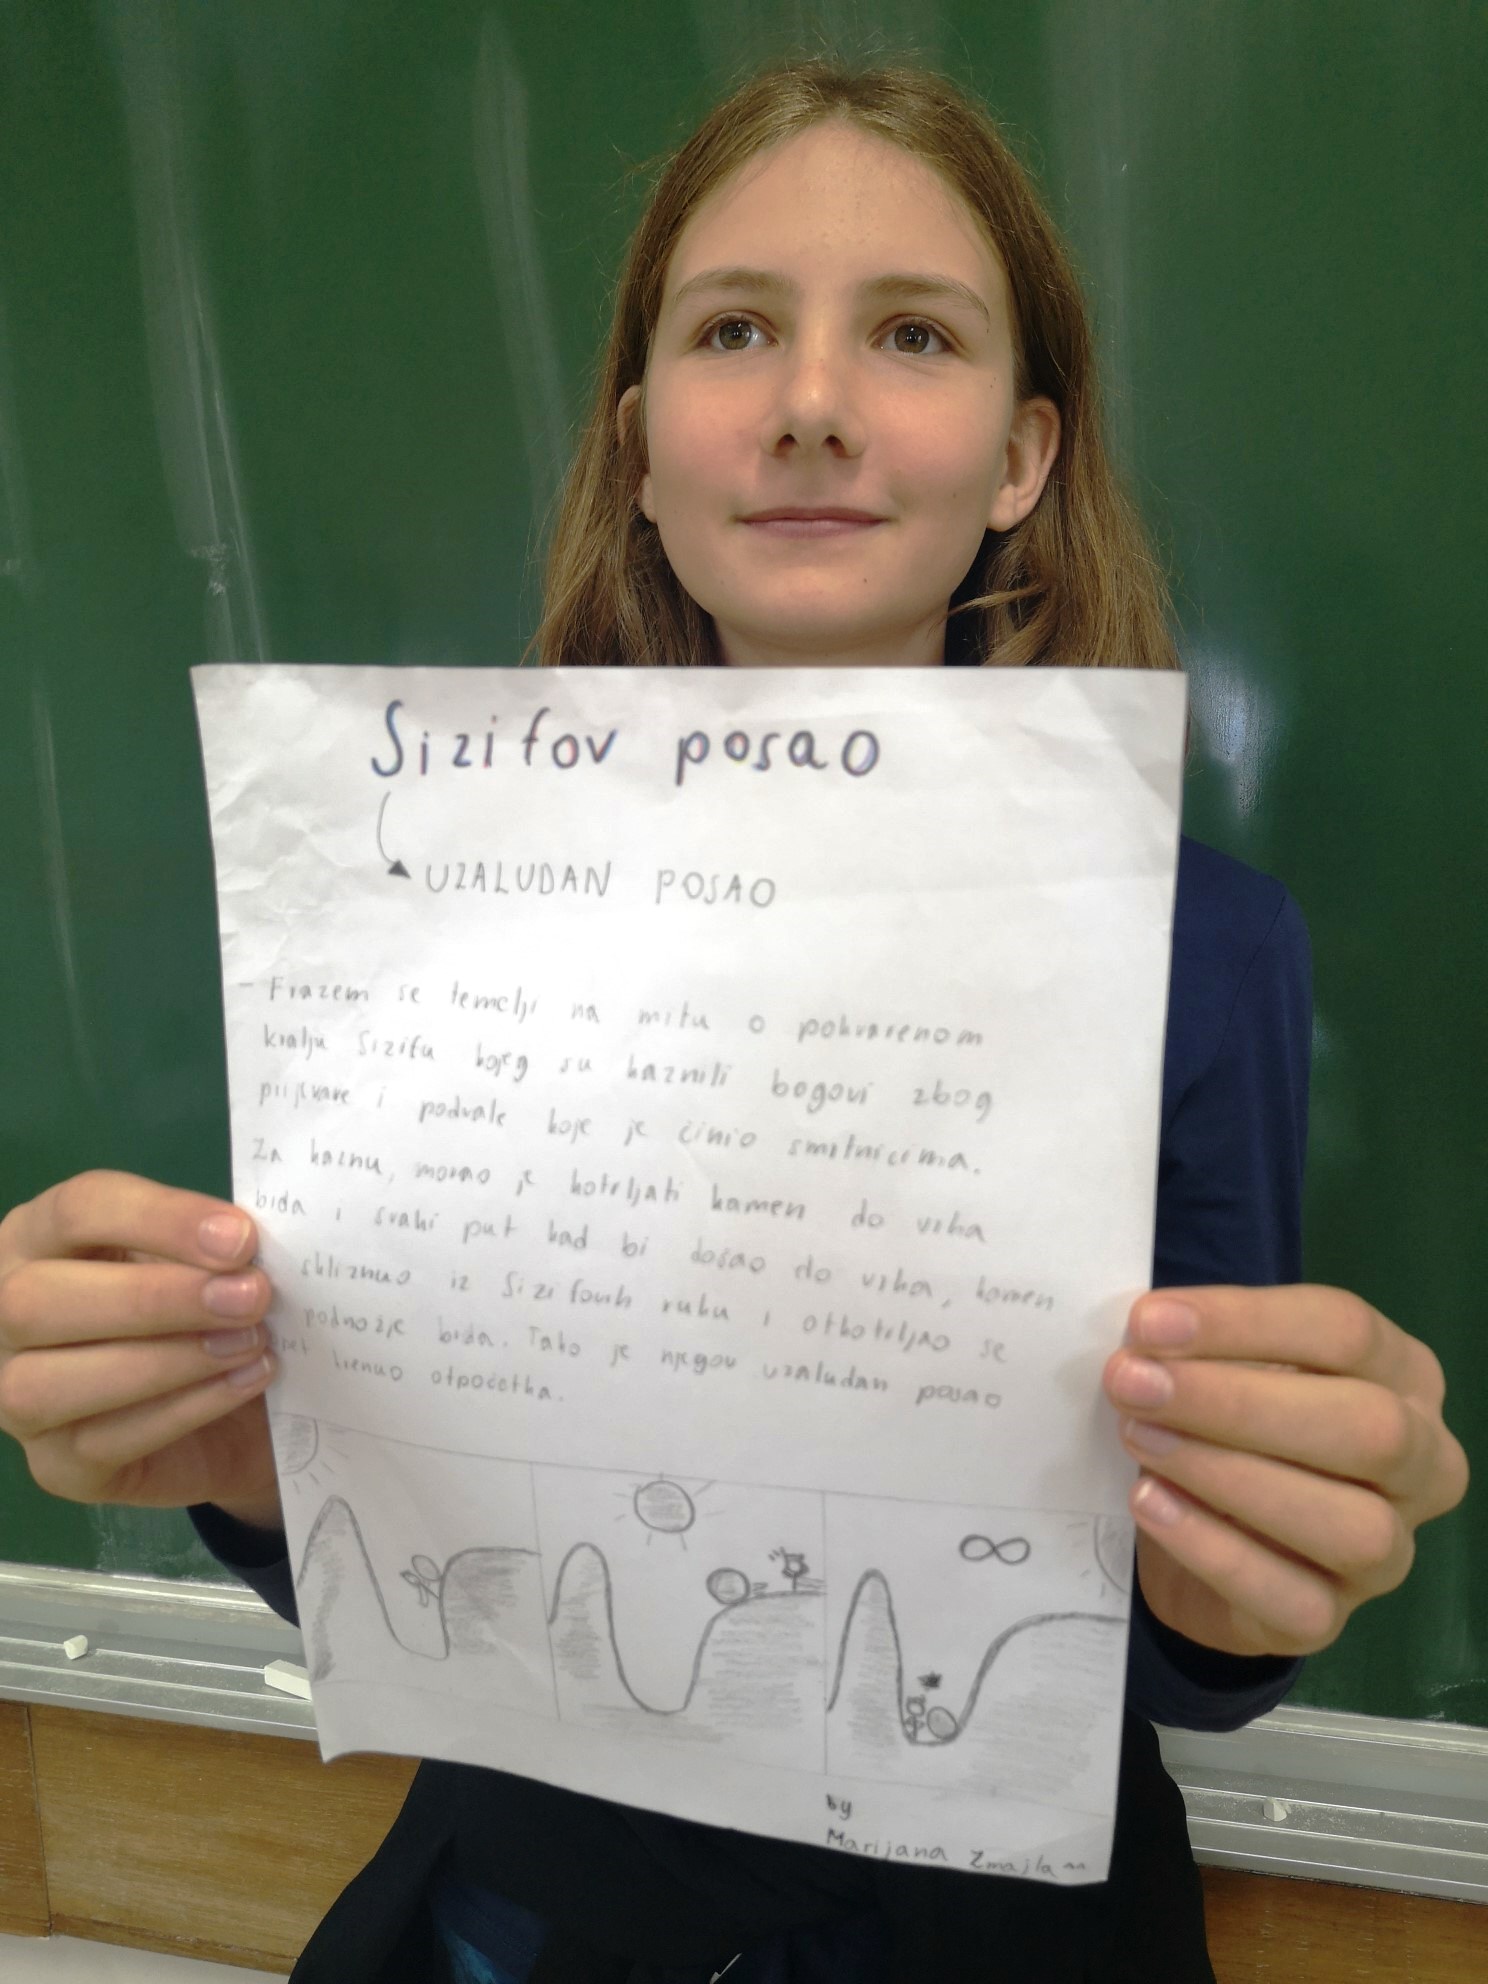 Sizifov posao
UZALUDAN POSAO
- Frazem se temelji na mitu o pokvarenom
kralju Sizifu kojeg su kaznili bogovi zbog
prijevare i podvale koje je činio smrtnicima.
Za kaznu, morao je kotrljati kamen do vrha
brda i svaki put kad bi došao do vrha, kamen
skliznuo iz Sizifovih ruku i otkotrljao se
podnožje brda. Tako je njegov uzaludan posao
krenuo otpočetka.
∞
by
Marijana Zmajla ^^